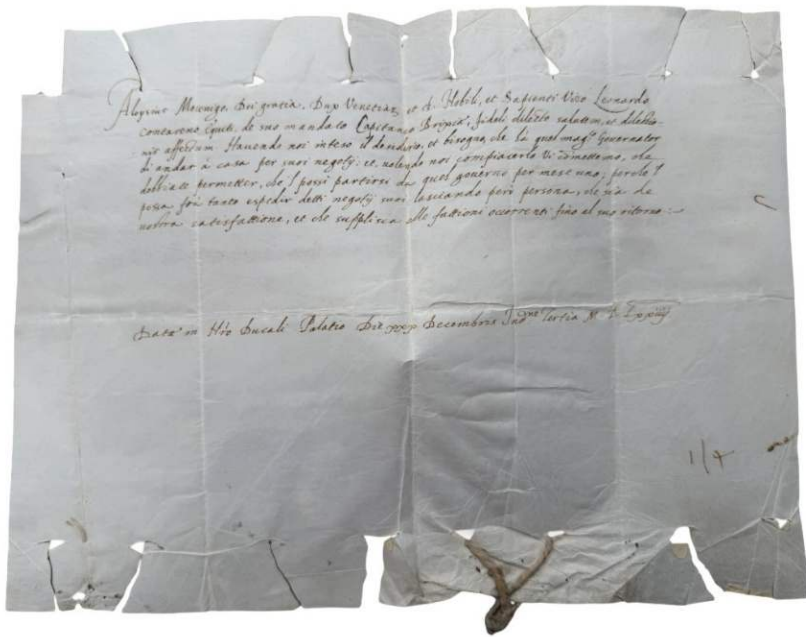 Aloysius Mocenigo Dei gratia Dux Venetiar, et c. Nobili, et Sapienti Viro Leonardo
Contareno Equiti, de suo mandato Capitaneo Brixiæ, fideli dilecto salutem, et dilectio-
nis affectum. Havendo noi inteso il desiderio, et bisogno, che hà quel mag.co Governator
di andar à casa per suoi negotij: et volendo noi compiacerlo Vi commettemo, che
dobbiate permetter, che'l possi partirsi da quel governo per mese uno, perche'l
possa frà tanto expedir detti negotij suoi lasciando però persona, che sia de
nostra satisfattione, et che supplisca alle fattioni occorrenti fino al suo ritorno:
Datæ in Nrõ Ducali Palatio Die xxx Decembris Ind.ne Tertia M D Lxxiiij